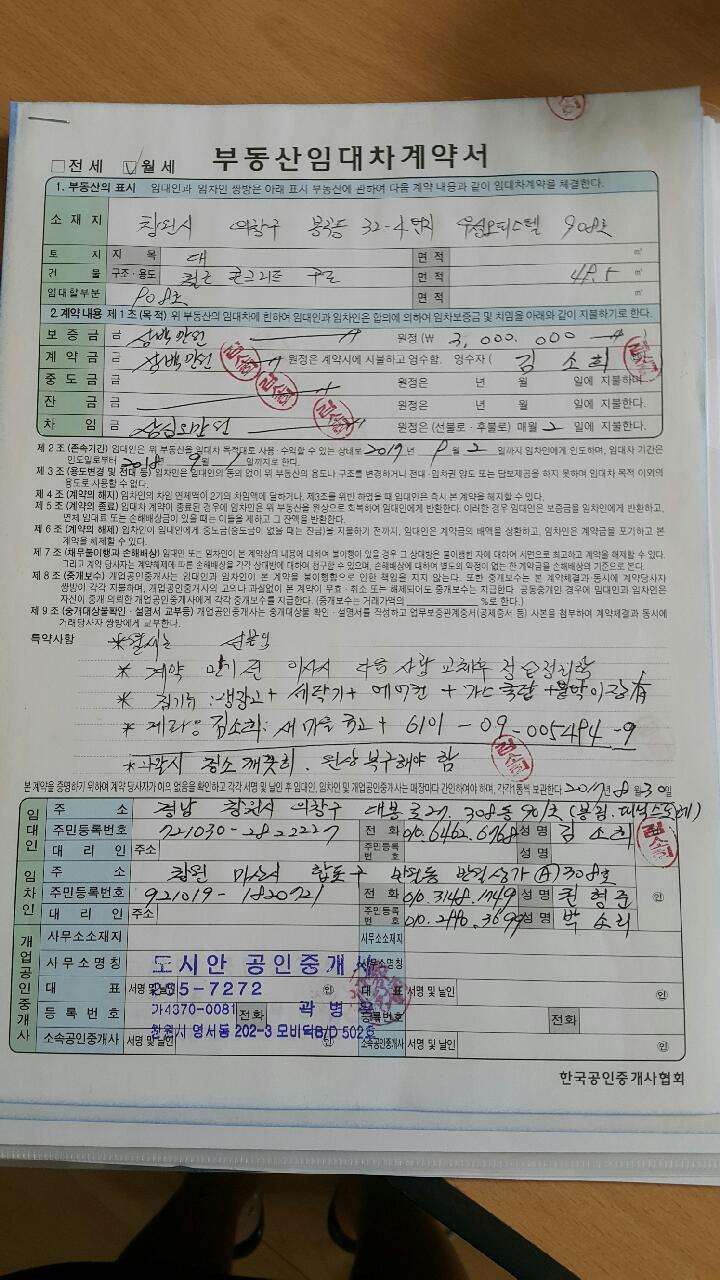 □전세 ☑월세 부동산임대차계약서
1. 부동산의 표시 임대인과 임차인 쌍방은 아래 표시 부동산에 관하여 다음 계약 내용과 같이 임대차계약을 체결한다.
소재지 창원시 의창구 봉곡동 32-4번지 오피스텔 908호
토지 지목 대 면적 ㎡
건물 구조·용도 철근 콘크리트 구조 면적 48.5 ㎡
임대할부분 908호
2. 계약내용 제1조 (목적) 위 부동산의 임대차에 한하여 임대인과 임차인은 합의에 의하여 임차보증금 및 차임을 아래와 같이 지불하기로 한다.
보증금 금 삼백만원 원정 (₩ 3,000,000 )
계약금 금 삼백만원 원정은 계약시에 지불하고 영수함. 영수자 ( 김소희
중도금 금 원정은 년 월 일에 지불하며
잔금 금 원정은 년 월 일에 지불한다.
차임 금 삼십오만원 원정은 (선불로·후불로) 매월 2 일에 지불한다.
제2조 (존속기간) 임대인은 위 부동산을 임대차 목적대로 사용·수익할 수 있는 상태로 2017년 9월 2일까지 임차인에게 인도하며, 임대차 기간은
인도일로부터 2018 9월 1일까지로 한다.
제3조 (용도변경 및 전대 등) 임차인은 임대인의 동의 없이 위 부동산의 용도나 구조를 변경하거나 전대·임차권 양도 또는 담보제공을 하지 못하며 임대차 목적 이외의
용도로 사용할 수 없다.
제4조 (계약의 해지) 임차인의 차임 연체액이 2기의 차임액에 달하거나, 제3조를 위반 하였을 때 임대인은 즉시 본 계약을 해지할 수 있다.
제5조 (계약의 종료) 임대차 계약이 종료된 경우에 임차인은 위 부동산을 원상으로 회복하여 임대인에게 반환한다. 이러한 경우 임대인은 보증금을 임차인에게 반환하고,
연체 임대료 또는 손해배상금이 있을 때는 이들을 제하고 그 잔액을 반환한다.
제6조 (계약의 해제) 임차인이 임대인에게 중도금(중도금이 없을 때는 잔금)을 지불하기 전까지, 임대인은 계약금의 배액을 상환하고, 임차인은 계약금을 포기하고 본
계약을 해제할 수 있다.
제7조 (채무불이행과 손해배상) 임대인 또는 임차인이 본 계약상의 내용에 대하여 불이행이 있을 경우 그 상대방은 불이행한 자에 대하여 서면으로 최고하고 계약을 해제할 수 있다.
그리고 계약 당사자는 계약해제에 따른 손해배상을 각각 상대방에 대하여 청구할 수 있으며, 손해배상에 대하여 별도의 약정이 없는 한 계약금을 손해배상의 기준으로 본다.
제8조 (중개보수) 개업공인중개사는 임대인과 임차인이 본 계약을 불이행함으로 인한 책임을 지지 않는다. 또한 중개보수는 본 계약체결과 동시에 계약당사자
쌍방이 각각 지불하며, 개업공인중개사의 고의나 과실없이 본 계약이 무효·취소 또는 해제되어도 중개보수는 지급한다. 공동중개인 경우에 임대인과 임차인은
자신이 중개 의뢰한 개업공인중개사에게 각각 중개보수를 지급한다. (중개보수는 거래가액의 %로 한다.)
제9조 (중개대상물확인·설명서 교부등) 개업공인중개사는 중개대상물 확인·설명서를 작성하고 업무보증관계증서(공제증서 등) 사본을 첨부하여 계약체결과 동시에
거래당사자 쌍방에게 교부한다.
특약사항 *월세는 선불임
* 계약 만기 전 이사시 다음 사람 교체후 정산정리함
* 집기류 : 냉장고 + 세탁기 + 에어컨 + 가스쿡탑 + 붙박이장 有
* 계좌 김소희: 새마을 금고 + 6101-09-005484-9
*퇴실시 청소 깨끗히. 원상 복구해야 함
본 계약을 증명하기 위하여 계약 당사자가 이의 없음을 확인하고 각각 서명 및 날인 후 임대인, 임차인 및 개업공인중개사는 매장마다 간인하여야 하며, 각각 1통씩 보관한다. 2017년 8월 30일
임대인 주소 경남 창원시 의창구 대봉로27, 308동 901호
주민등록번호 721030-2822227 전화 010.6462.6768 성명 김소희
대리인 주소 주민등록번호 성명
임차인 주소 창원 마산시 합포구 상가(A)308호
주민등록번호 921019-1820721 전화 010.3148.1749 성명 권형준 ㊞
대리인 주소 주민등록번호 010.2770.3699 성명 박소리
개업공인중개사 사무소소재지 사무소소재지
사무소명칭 도시안 공인중개사 사무소명칭
대표 서명및날인 285-7272 ㊞ 대표 서명 및 날인 ㊞
등록번호 가4370-0081 전화 곽병용 등록번호 전화
창원시 명서동 202-3 모비딕B/D 502호
소속공인중개사 서명 및 날인 ㊞ 소속공인중개사 서명 및 날인 ㊞
한국공인중개사협회